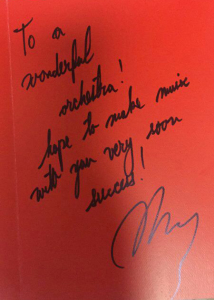 To a
wonderful
orchestra!
hope to make music
with you very soon
success!